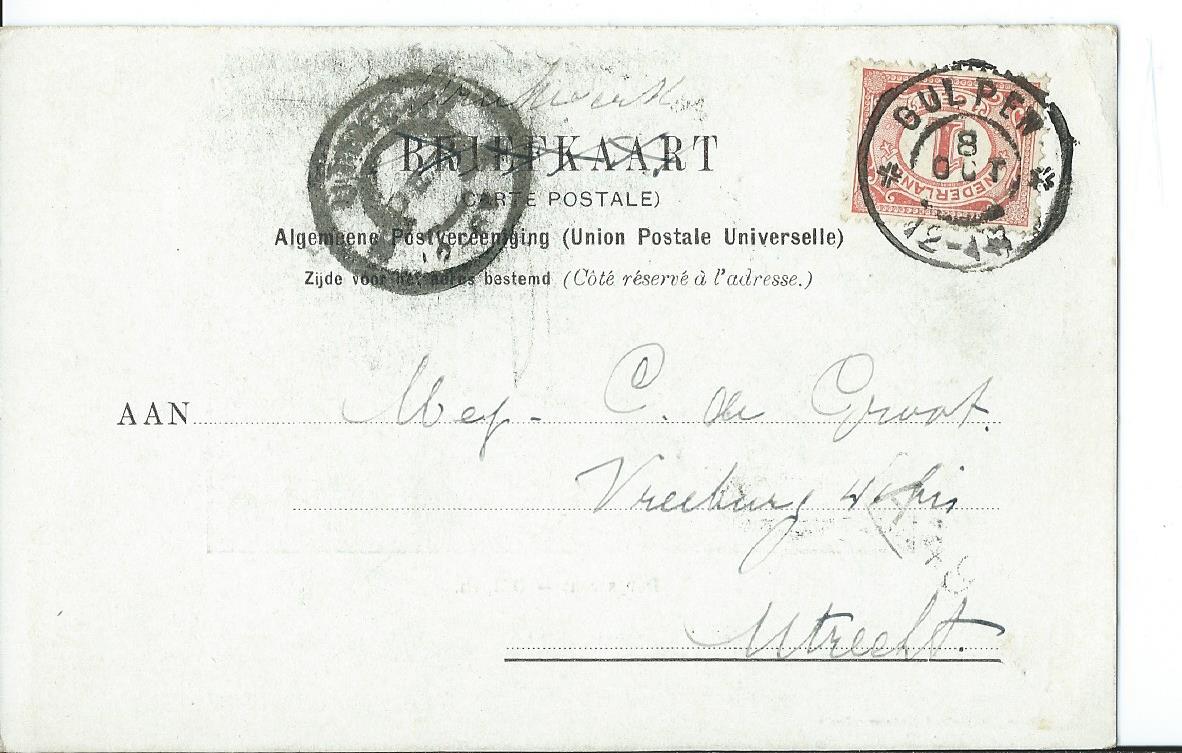 BRIEFKAART
(CARTE POSTALE)
Algemeene Postvereeniging (Union Postale Universelle)
Zijde voor het adres bestemd (Côté réservé à l'adresse.)
GULPEN
8
OCT
12-1N
1
NEDERLAND
AAN Mej. C. de Groot.
Vreeburg bis
Utrecht.